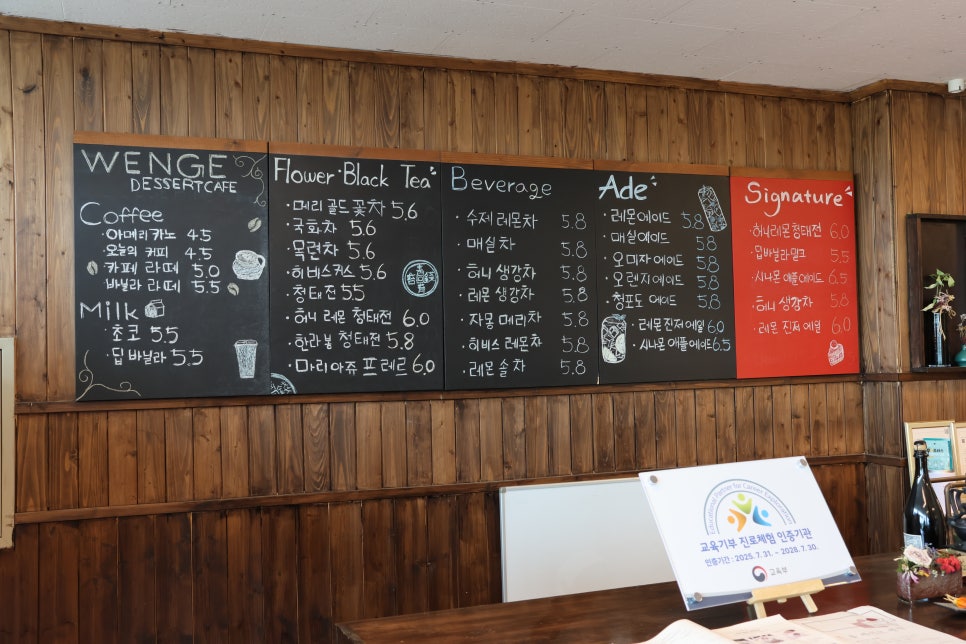 WENGE
DESSERT CAFE
Coffee
아메리카노 4.5
오늘의 커피 4.5
· 카페 라떼 5.0
바닐라 라떼 5.5
Milk
· 초코 5.5
· 딥 바닐라 5.5
Flower·Black Tea
· 메리골드 꽃차 5.6
· 국화차 5.6
· 목련차 5.6
· 히비스커스 5.6
· 청태전 5.5
· 허니 레몬 청태전 6.0
· 한라봉 청태전 5.8
· 마리아쥬 프레르 6.0
Beverage
· 수제 레몬차 5.8
· 매실차 5.8
· 허니 생강차 5.8
· 레몬 생강차 5.8
· 자몽 메리차 5.8
· 히비스 레몬차 5.8
· 레몬 솔차 5.8
Ade
· 레몬에이드 5.8
· 매실에이드 5.8
· 오미자 에이드 5.8
· 오렌지 에이드 5.8
· 청포도 에이드 5.8
· 레몬진저에일 6.0
· 시나몬 애플에이드 6.5
Signature
· 허니레몬 청태전 6.0
· 딥바닐라 밀크 5.5
· 시나몬 애플에이드 6.5
· 허니 생강차 5.8
· 레몬 진저 에일 6.0
Educational Partner for Career Exploration
교육기부 진로체험 인증기관
인증기간 : 2025. 7. 31. ~ 2028. 7. 30.
교육부